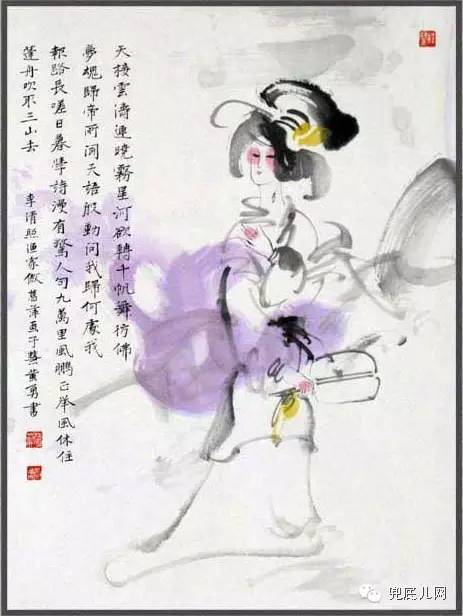 天接雲濤連曉霧星河欲轉千帆舞彷佛
夢魂歸帝所闻天語殷勤问我歸何處我
報路長嗟日暮學詩漫有驚人句九萬里風鵬正举風休住
蓬舟吹取三山去
李清照渔家傲菖蒲黄勇書
兜底儿网